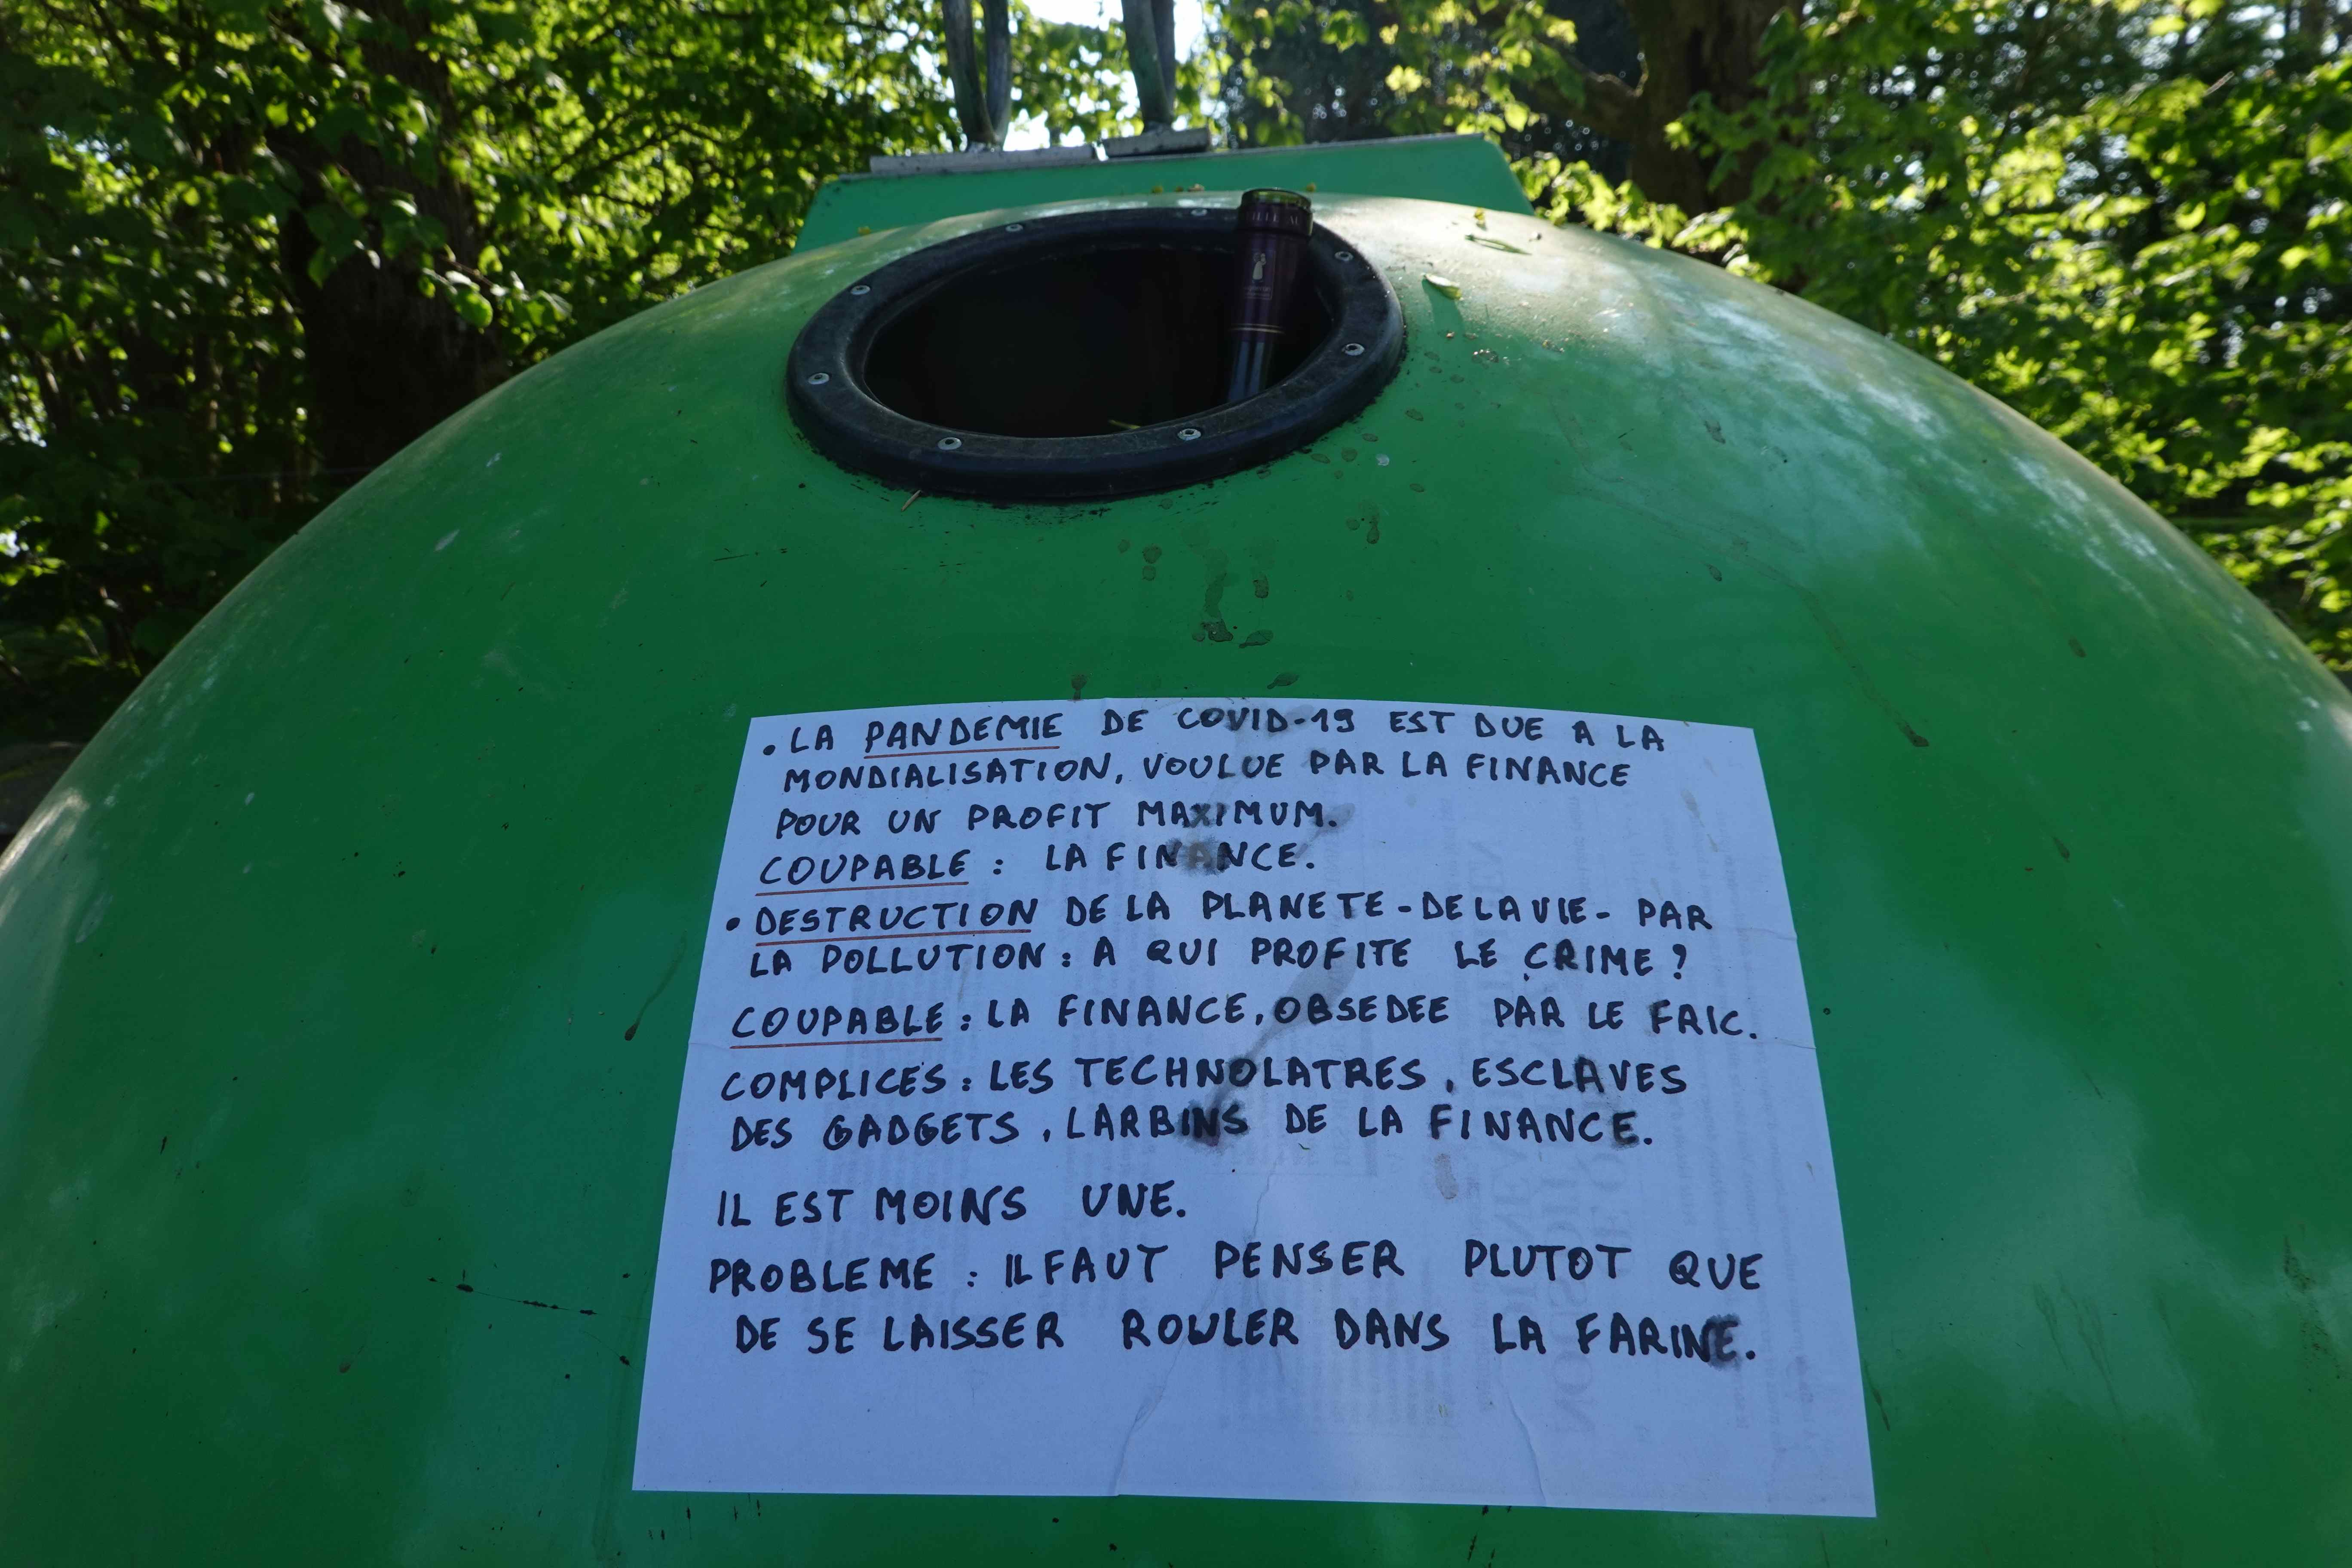 • LA PANDEMIE DE COVID-19 EST DUE A LA
MONDIALISATION, VOULUE PAR LA FINANCE
POUR UN PROFIT MAXIMUM.
COUPABLE : LA FINANCE.
• DESTRUCTION DE LA PLANETE - DE LA VIE - PAR
LA POLLUTION : A QUI PROFITE LE CRIME ?
COUPABLE : LA FINANCE, OBSEDEE PAR LE FRIC.
COMPLICES : LES TECHNOLATRES, ESCLAVES
DES GADGETS, LARBINS DE LA FINANCE.
IL EST MOINS UNE.
PROBLEME : IL FAUT PENSER PLUTOT QUE
DE SE LAISSER ROULER DANS LA FARINE.